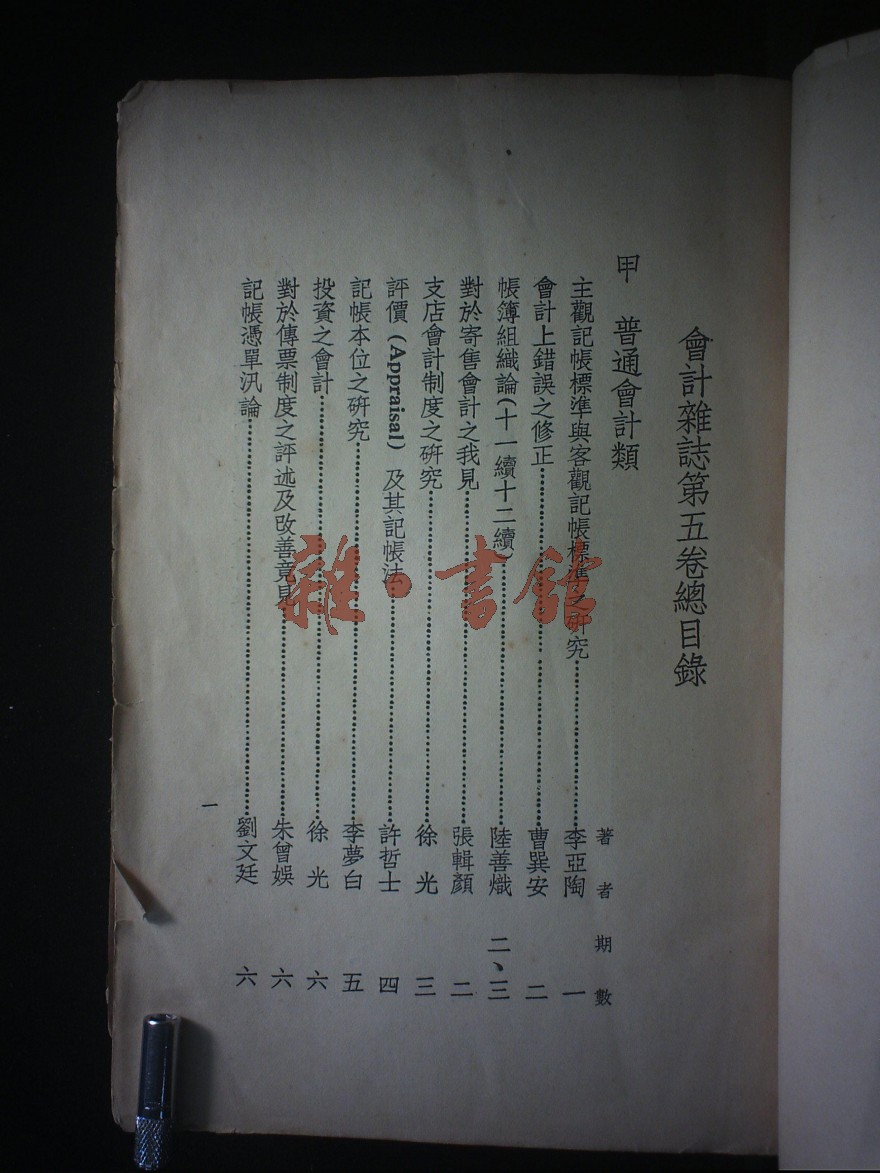 會計雜誌第五卷總目錄
著者 期數
甲 普通會計類
主觀記帳標準與客觀記帳標準之研究 李亞陶 一
會計上錯誤之修正 曹巽安 二
帳簿組織論(十一續十二續) 陸善熾 二、三
對於寄售會計之我見 張輯顏 二
支店會計制度之研究 徐光 三
評價(Appraisal)及其記帳法 許哲士 四
記帳本位之研究 李夢白 五
投資之會計 徐光 六
對於傳票制度之評述及改善意見 朱曾娛 六
記帳憑單汎論 劉文廷 六
一
雜·書館